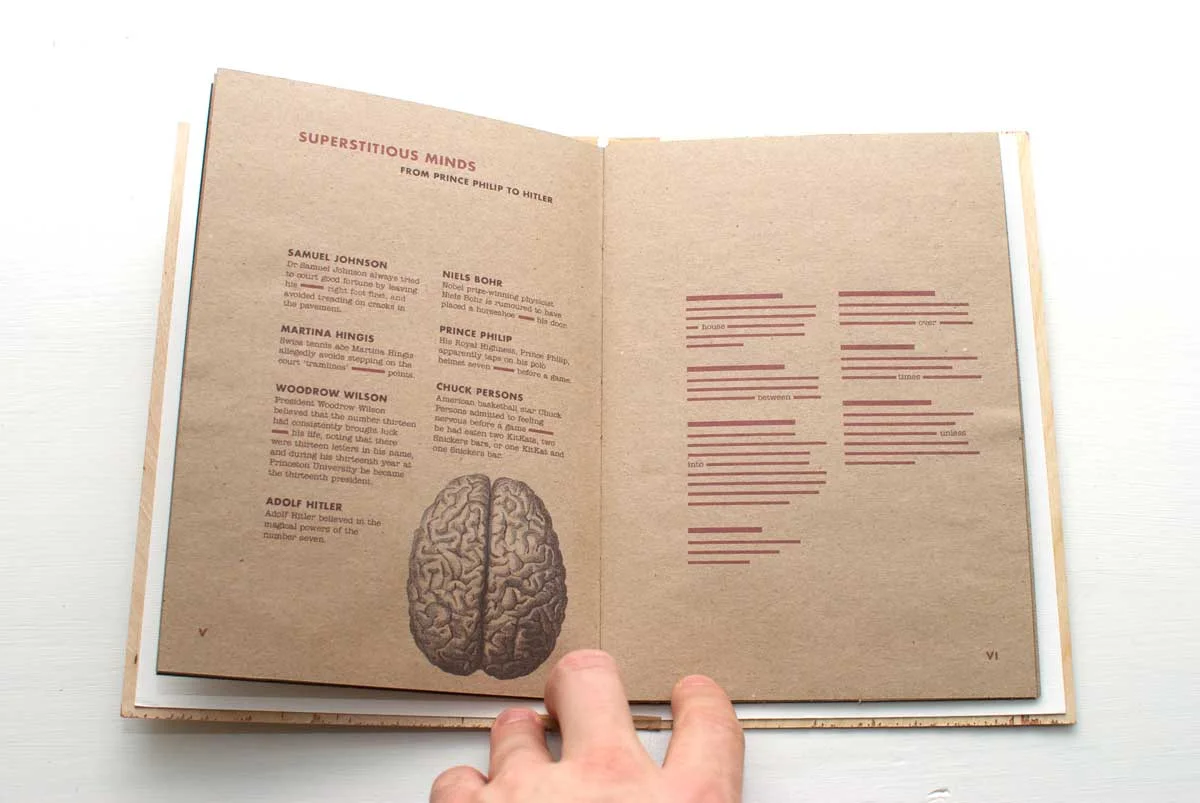 SUPERSTITIOUS MINDS
FROM PRINCE PHILIP TO HITLER
SAMUEL JOHNSON
Dr Samuel Johnson always tried
to court good fortune by leaving
his right foot first, and
avoided treading on cracks in
the pavement.
MARTINA HINGIS
Swiss tennis ace Martina Hingis
allegedly avoids stepping on the
court 'tramlines' points.
WOODROW WILSON
President Woodrow Wilson
believed that the number thirteen
had consistently brought luck
his life, noting that there
were thirteen letters in his name,
and during his thirteenth year at
Princeton University he became
the thirteenth president.
ADOLF HITLER
Adolf Hitler believed in the
magical powers of the
number seven.
NIELS BOHR
Nobel prize-winning physicist
Niels Bohr is rumoured to have
placed a horseshoe his door.
PRINCE PHILIP
His Royal Highness, Prince Philip,
apparently taps on his polo
helmet seven before a game.
CHUCK PERSONS
American basketball star Chuck
Persons admitted to feeling
nervous before a game
he had eaten two KitKats, two
Snickers bars, or one KitKat and
one Snickers bar.
V
house
between
into
over
times
unless
VI